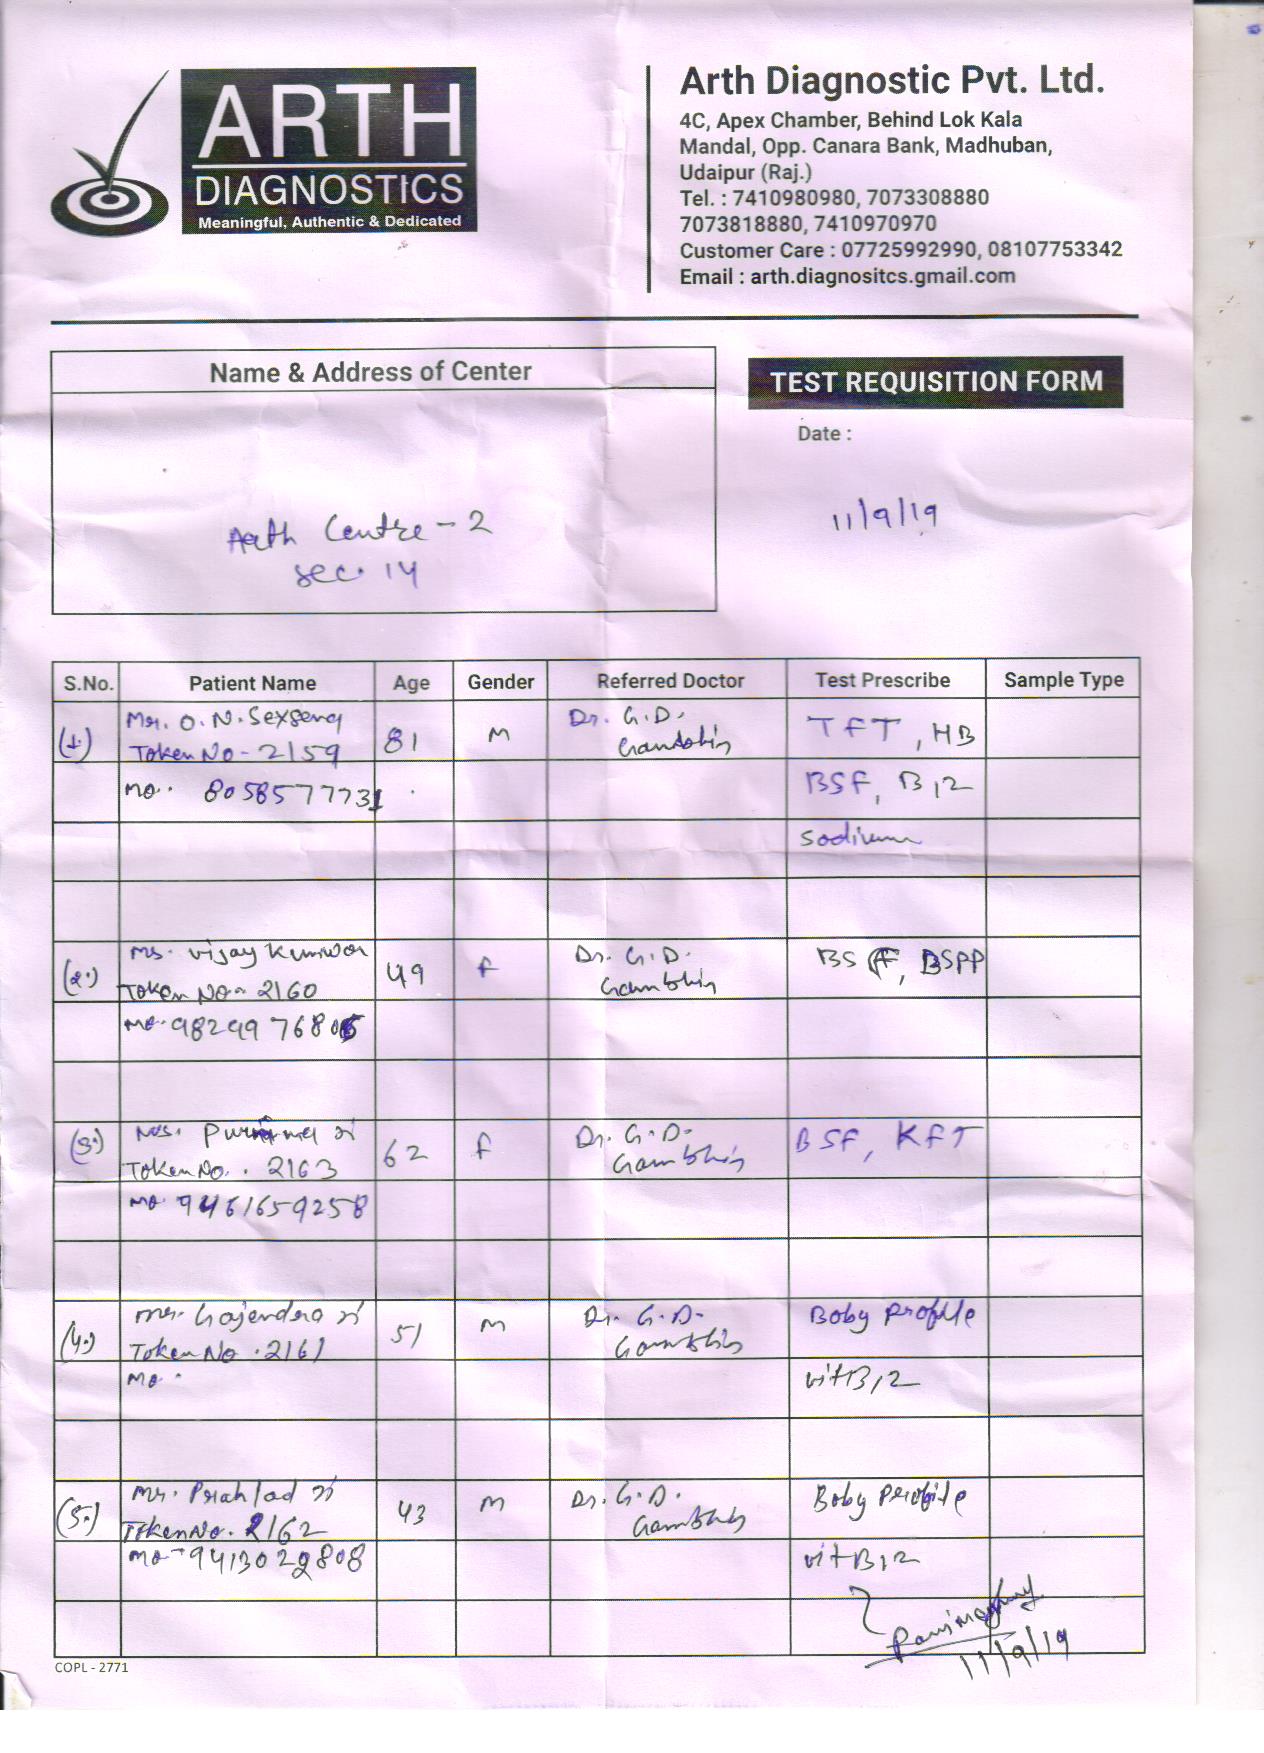 ARTH
DIAGNOSTICS
Meaningful, Authentic & Dedicated
Arth Diagnostic Pvt. Ltd.
4C, Apex Chamber, Behind Lok Kala
Mandal, Opp. Canara Bank, Madhuban,
Udaipur (Raj.)
Tel. : 7410980980, 7073308880
7073818880, 7410970970
Customer Care : 07725992990, 08107753342
Email : arth.diagnositcs.gmail.com
Name & Address of Center
TEST REQUISITION FORM
Date :
Arth Centre - 2
Sec. 14
11/9/19
S.No. Patient Name Age Gender Referred Doctor Test Prescribe Sample Type
(1.) Mr. O.N. Sexsena 81 M Dr. G.D. TFT, HB
Token No - 2159 Gambhir
Mo. 8058577731 BSF, B12
Sodium
(2.) Ms. Vijay Kunwar 49 F Dr. G.D. BSF, BSPP
Token No - 2160 Gambhir
Mo. 982997680
(3.) Mrs. Purnima 62 F Dr. G.D. BSF, KFT
Token No. 2163 Gambhir
Mo. 9461659258
(4.) Mr. Gajendra 51 M Dr. G.D. Boby Profile
Token No. 2161 Gambhir
Mo. VitB12
(5.) Mr. Prahlad 43 M Dr. G.D. Boby Profile
Token No. 2162 Gambhir
Mo - 9413029808 VitB12
11/9/19
COPL - 2771